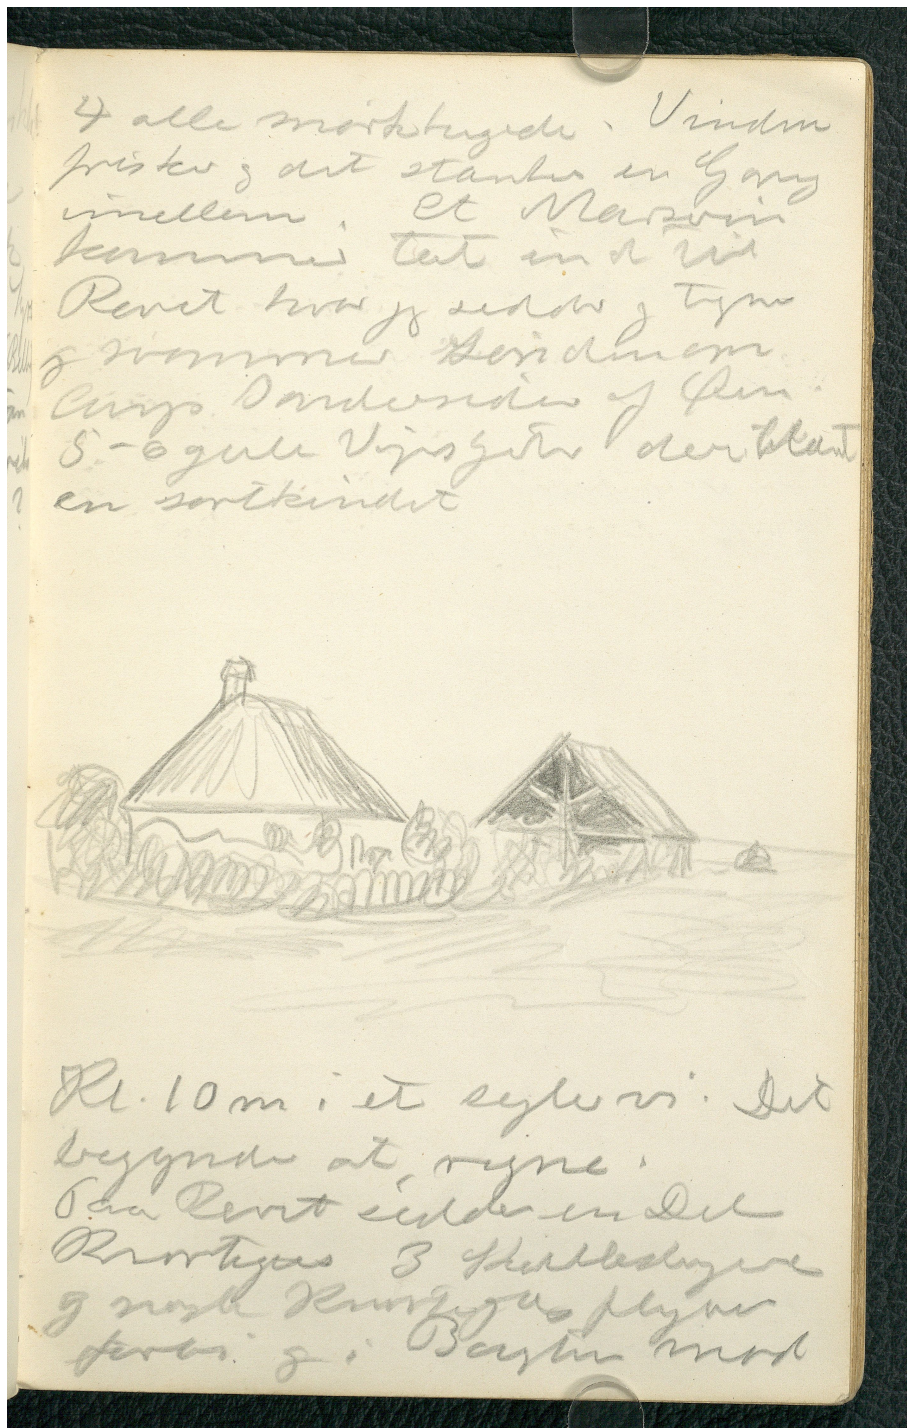 4 alle mørkbugede. Vinden
frisker og det stænker en Gang
imellem. Et Marsvin
kommer tæt ind til
Revet hvor jeg sidder og tegner
og svømmer
langs Søndersiden af Øen.
5-6 gule Vipstjerter deriblandt
en sortkindet
Kl. 10 m i et sejler vi. Det
begynder at regne.
Paa Revet sidder en Del
Knortegæs 3
og nogle Knortegæs flyver
forbi og i Bugten mod